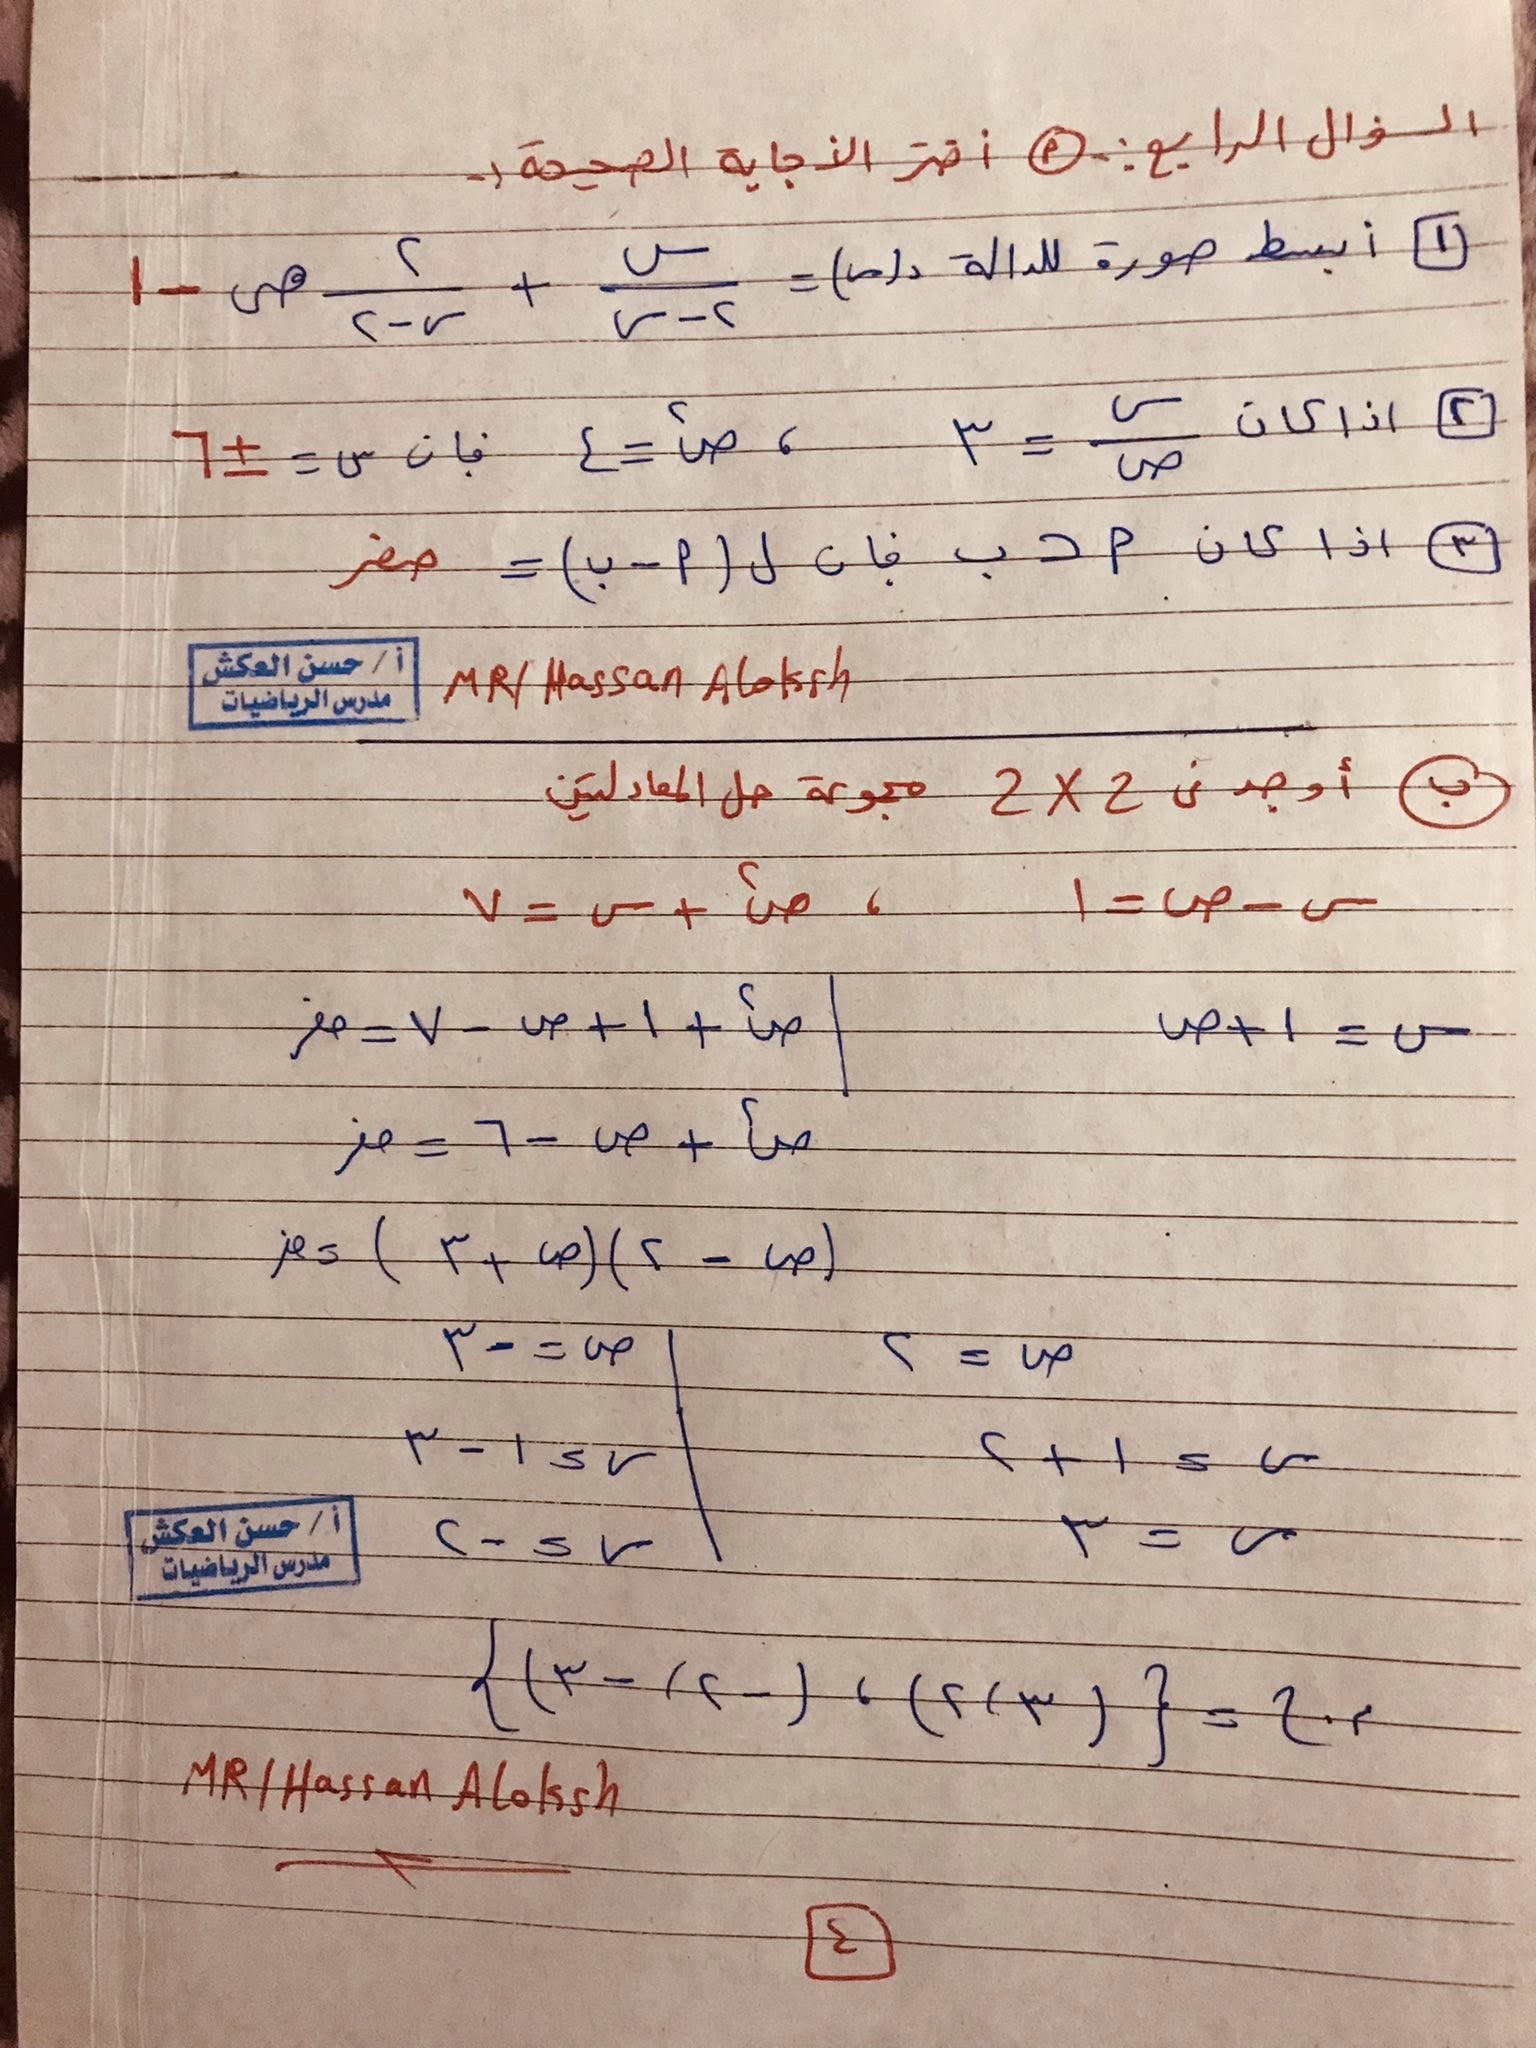 السؤال الرابع :- (P) أختر الأجابة الصحيحة :-
[١] أبسط صورة للدالة د(س) = س/(٢-س) + ٢/(س-٢) هى -١
[٢] اذا كان س/ص = ٣ ، ص٢ = ٤ فإن س = ±٦
(٣) اذا كان P ⊂ ب فان ل(P-ب) = صفر
MR/Hassan Aloksh
أ/ حسن العكش
مدرس الرياضيات
(ب) أوجد فى 2 X 2 مجموعة حل المعادلتين
س - ص = ١ ، ص٢ + س = ٧
س = ١ + ص | ص٢ + ١ + ص - ٧ = صفر
ص٢ + ص - ٦ = صفر
(ص - ٢)(ص + ٣) = صفر
ص = ٢ | ص = -٣
س = ١ + ٢ | س = ١ - ٣
س = ٣ | س = -٢
أ/ حسن العكش
مدرس الرياضيات
م.ح = {(٣،٢) ، (-٢،-٣)}
MR/Hassan Aloksh
٤